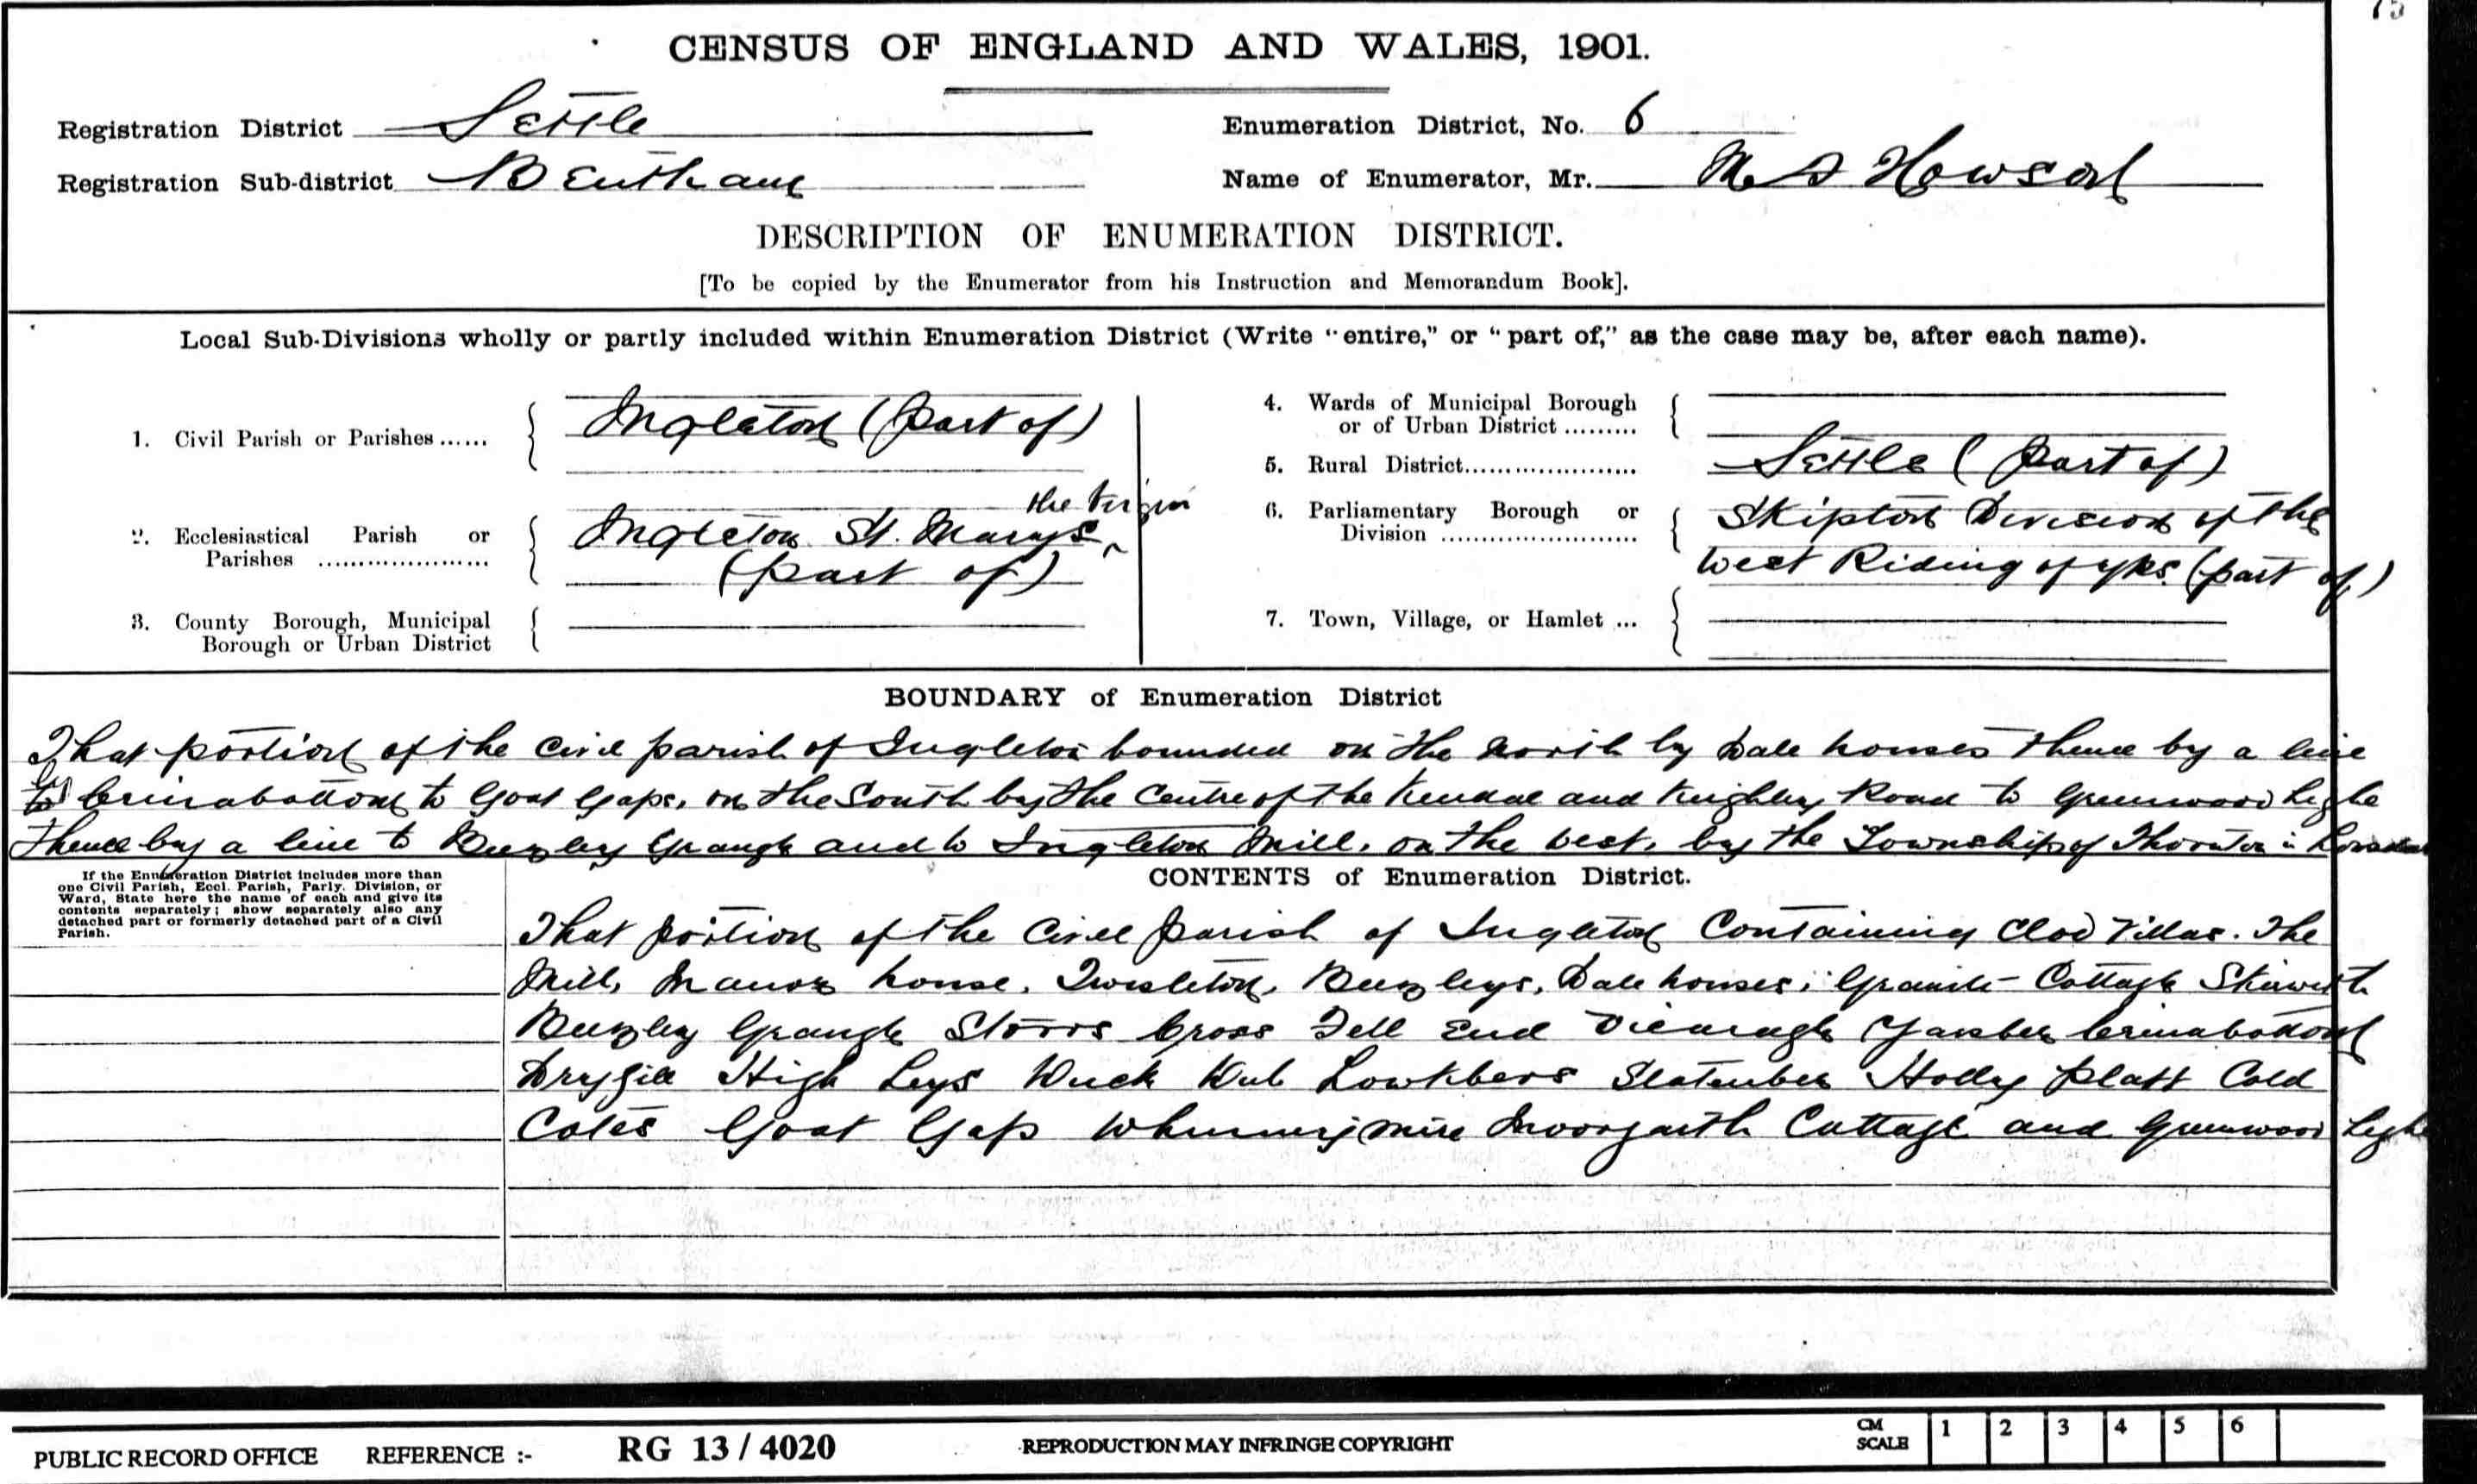 75
CENSUS OF ENGLAND AND WALES, 1901.
Registration District Settle
Enumeration District, No. 6
Registration Sub-district Bentham
Name of Enumerator, Mr. Howson
DESCRIPTION OF ENUMERATION DISTRICT.
[To be copied by the Enumerator from his Instruction and Memorandum Book].
Local Sub-Divisions wholly or partly included within Enumeration District (Write "entire," or "part of," as the case may be, after each name).
1. Civil Parish or Parishes ...... Ingleton (part of)
2. Ecclesiastical Parish or
Parishes .....................
Ingleton St. Marys the Virgin
(part of)
3. County Borough, Municipal
Borough or Urban District
4. Wards of Municipal Borough
or of Urban District .........
5. Rural District..................... Settle (part of)
6. Parliamentary Borough or
Division ........................
Skipton Division of the
West Riding of Yks. (part of)
7. Town, Village, or Hamlet ...
BOUNDARY of Enumeration District
That portion of the Civil parish of Ingleton bounded on the North by Dale houses thence by a line
by Crinabottom to Goat Gaps, on the South by the Centre of the Kendal and Keighley Road to Greenwood Leghe
thence by a line to Beezley Grange and to Ingleton Mill, on the West, by the Township of Thornton in Lonsdale
If the Enumeration District includes more than
one Civil Parish, Eccl. Parish, Parly. Division, or
Ward, State here the name of each and give its
contents separately; show separately also any
detached part or formerly detached part of a Civil
Parish.
CONTENTS of Enumeration District.
That portion of the Civil Parish of Ingleton Containing Clod Villas. The
Mill, Manor house, Twisleton, Beezleys, Dale houses, Granite Cottage Skirwith
Beezley Grange Storrs Cross Fell End Vicarage Yarsber Crinabottom
Drygill High Leys Wuck Dub Lowkbers Slatenber Holly Platt Cold
Cotes Goat Gap Whinneymire Moorgarth Cottage and Greenwood Leghe
PUBLIC RECORD OFFICE REFERENCE :- RG 13 / 4020
REPRODUCTION MAY INFRINGE COPYRIGHT
CM
SCALE
1 2 3 4 5 6